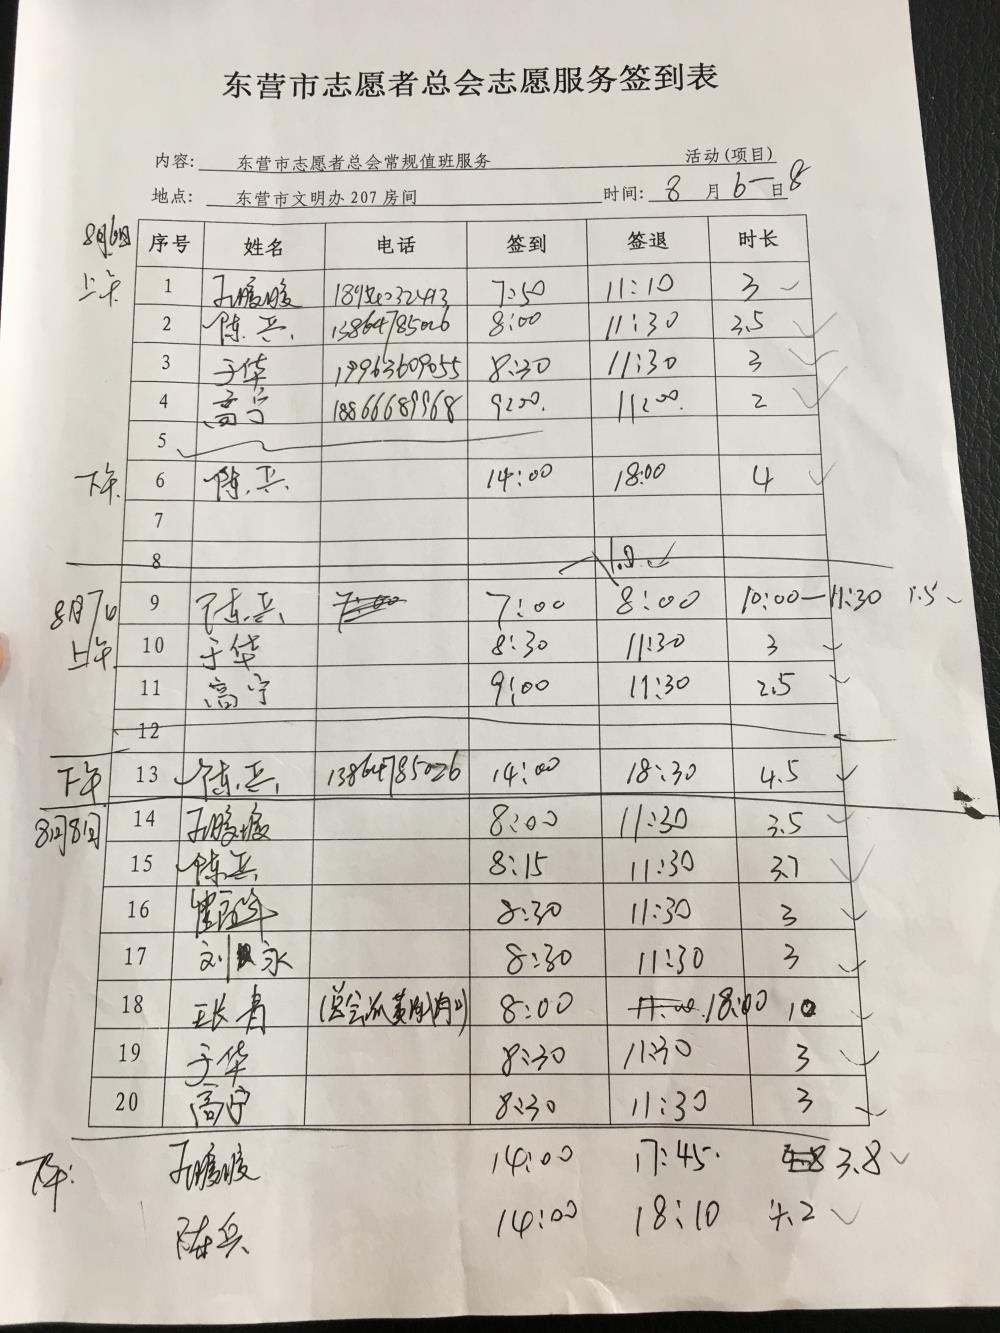 东营市志愿者总会志愿服务签到表
内容: 东营市志愿者总会常规值班服务 活动(项目)
地点: 东营市文明办 207 房间 时间: 8 月 6一 日 8
8月6日 序号 姓名 电话 签到 签退 时长
上午 1 孔暖暖 7:50 11:10 3
2 陈兵 13864785026 8:00 11:30 3.5
3 于华 19963609055 8:30 11:30 3
4 高宁 18866689968 9:00. 11:00. 2
5
下午 6 陈兵 14:00 18:00 4
7
8 1.0
8月7日 9 陈兵 7:00 8:00 10:00—11:30 1.5
上午 10 于华 8:30 11:30 3
11 高宁 9:00 11:30 2.5
12
下午 13 陈兵 13864785026 14:00 18:30 4.5
8月8日 14 孔暖暖 8:00 11:30 3.5
15 陈兵 8:15 11:30 3.7
16 8:30 11:30 3
17 刘 永 8:30 11:30 3
18 王长青 8:00 18:00 10
19 于华 8:30 11:30 3
20 高宁 8:30 11:30 3
下午: 孔暖暖 14:00 17:45. 3.8
陈兵 14:00 18:10 4.2